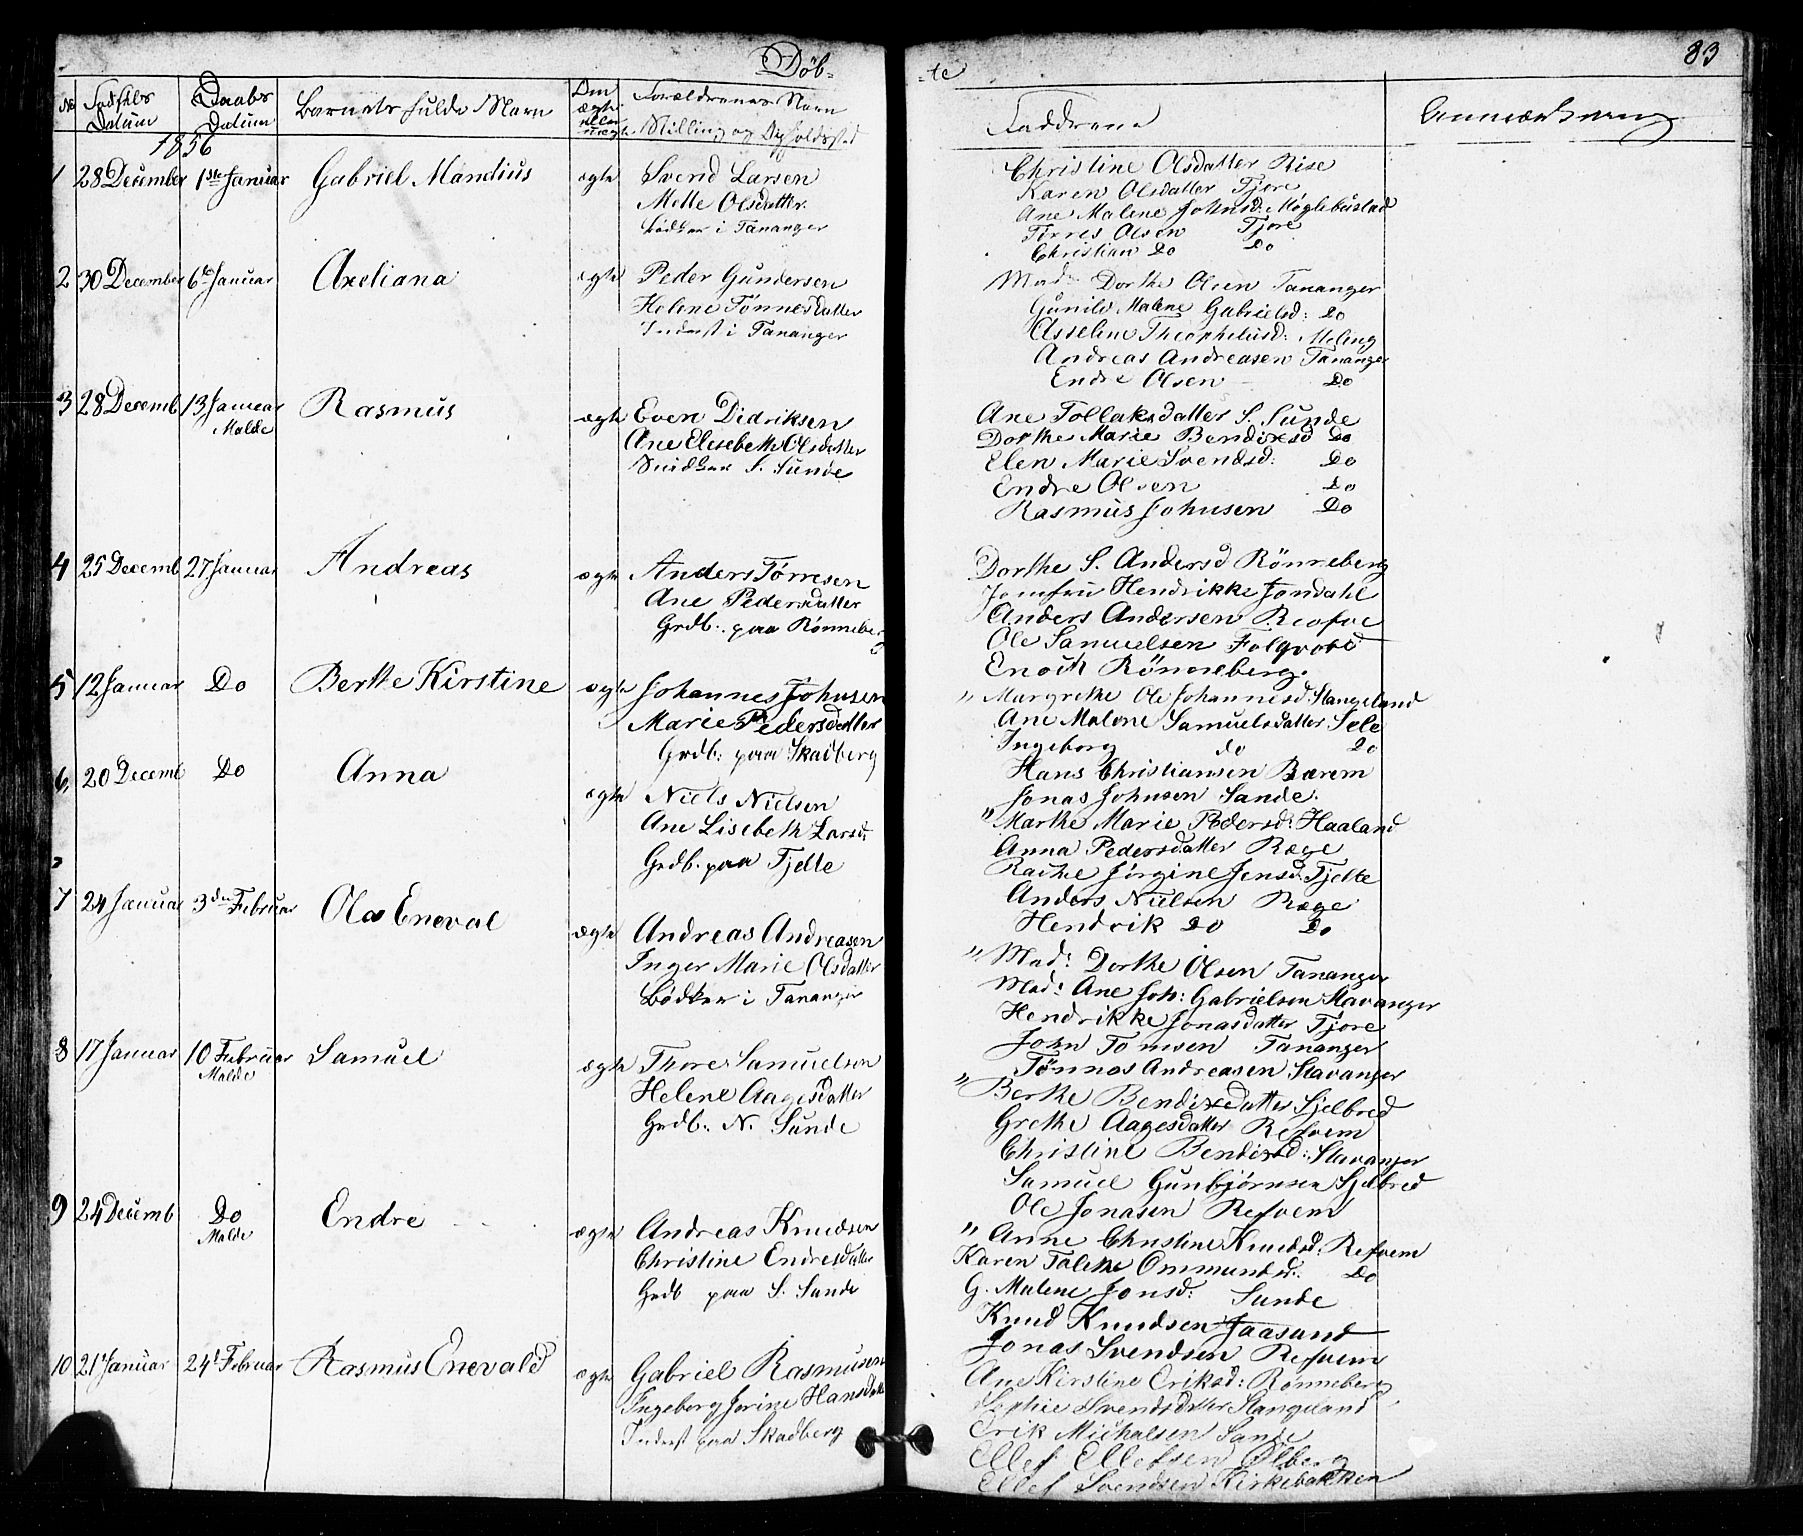 Døb-
-te
83
No
Fødsels Datum
Daabs Datum
Barnets fulde Navn
Om ægte eller uægte
Forældrenes Navn
Stilling og Opholdssted
Fadderne
Anmærkning
1856
1 28 December 1ste Januar Gabriel Mandius ægte Svend Larsen
Mette Olsdatter
bødker i Tananger
Christine Olsdatter Risе
Karen Olsdatter Tjore
Ane Malene Johnsd: Møglebustad
Tørres Olsen Tjore
Christian Do Do
2 30 December 6te Januar Axeliana ægte Peder Gundersen
Helene Tønnesdatter
Inderst i Tananger
Mad: Dorthe Olsen Tananger
Gunild Malene Gabrielsd: Do
Asseline Theophelusd: Meling
Andreas Andreasen Tananger
Endre Olsen Do
3 28 Decemb 13 Januar Rasmus ægte Even Didriksen
Malde
Ane Elesebeth Olsdatter
Snidker S. Sunde
Ane Tollaksdatter S. Sunde
Dorthe Marie Bendixsd Do
Elen Marie Svendsd: Do
Endre Olsen Do
Rasmus Johnsen Do
4 25 Decemb 27 Januar Andreas ægte Anders Tørresen
Ane Pedersdatter
Grdb. paa Rønneberg
Dorthe S. Andersd Rönneberg
Jomfru Hendrikke Jondahl
Anders Andersen
Ole Samuelsen
Enoch Rönneberg.
5 12 Januar Do Berthe Kirstine ægte Johannes Johnsen
Marie Pedersdatter
Grdb: paa Skadberg
" Margrethe Ole Johannesd: Stangeland
Ane Malene Samuelsdatter Sele
Ingeborg do Do
Hans Christiansen Bærem
Jonas Johnsen Sande.
6, 20 Decemb Do Anna ægte Niels Nielsen
Ane Lisebeth Larsd:
Grdb. paa Tjelte
" Marthe Marie Pedersd: Haaland
Anna Pedersdatter Ræge
Rachel Jørgine Jensd: Tjelte
Anders Nielsen Ræge
Hendrik Do Do
7 24 Januar 3den Februar Olas Eneval ægte Andreas Andreasen
Inger Marie Olsdatter
Bødker i Tananger
" Mad: Dorthe Olsen Tananger
Mad: Ane Joh: Gabrielsen Stavanger
Hendrikke Jonasdatter Tjore
John Tomsen Tananger
Tønnes Andreasen Stavanger
8 17 Januar 10 Februar Samuel ægte Thore Samuelson
Malde
Helene Aagesdatter
Grdb: N. Sunde
" Berthe Bendixsdatter Sjelbred
Grethe Aagesdatter Refvem
Christine Bendixsd: Stavanger
Samuel Gunbjørnsen Sjelbred
Ole Jonasen Refvem
9 24 Decemb Do Endre ægte Andreas Knudsen
Malde
Christine Endresdatter
Grdb paa S. Sunde
" Anne Christine Knudsd: Refvem
Karen Talette Ommundsd: Do
G. Malene Jonsd: Sunde
Knud Knudsen Jaasund
Jonas Svendsen Refvem
10 21 Januar 24 Februar Rasmus Enevald ægte Gabriel Rasmusen
Ingeborg Jorine Hansdatt
Inderst paa Skadberg
Ane Kirstine Eriksd: Rønneberg
Sophie Svendsdatter Stangeland
Erik Michalsen Sande
Ellef Ellefsen Ølberg
Ellef Svendsen Kirkebakken